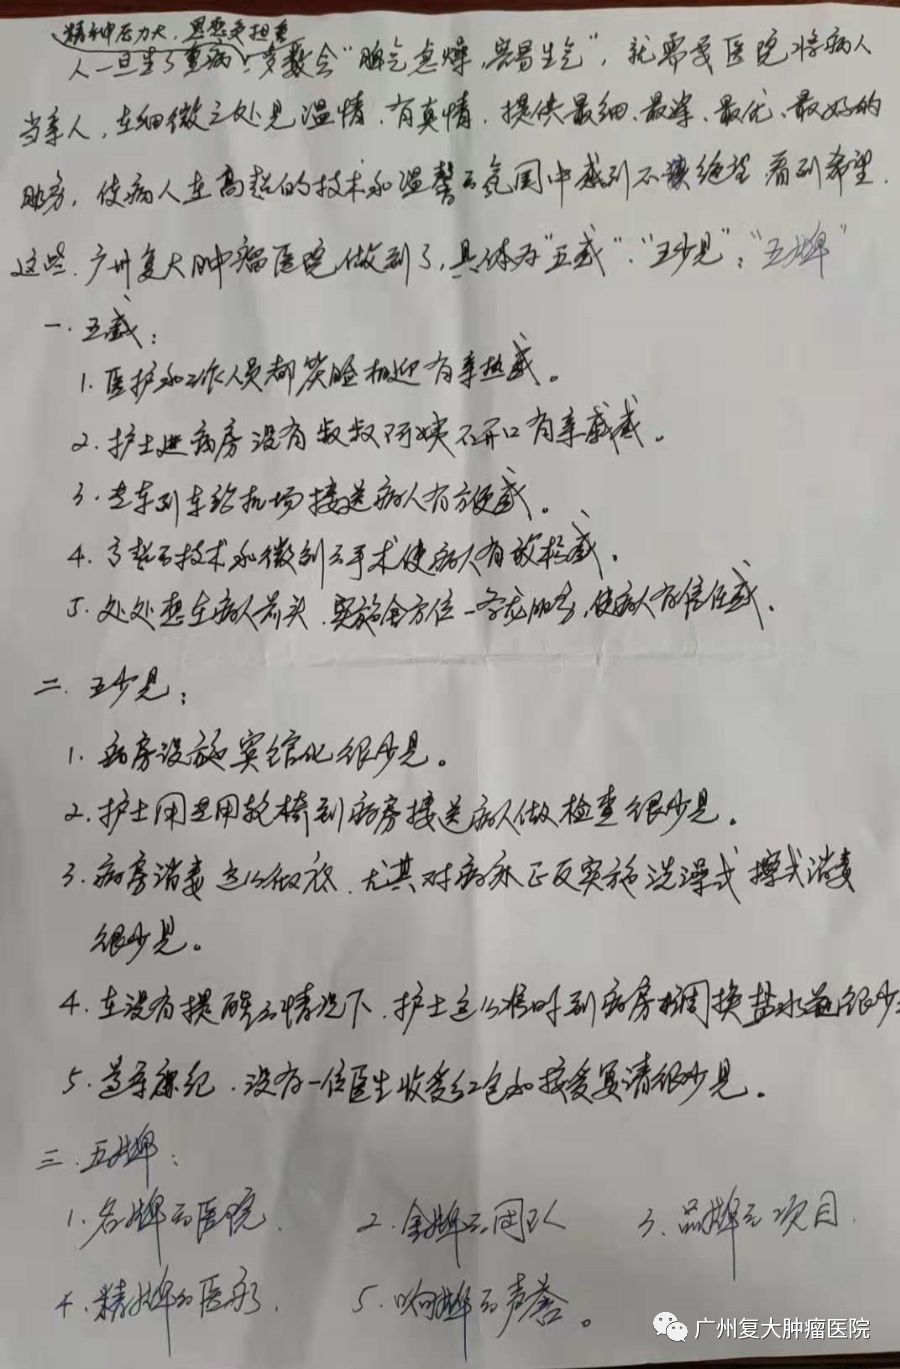 精神压力大，思想负担重
人一旦生了重病，多数会“脾气急燥，容易生气”，就需要医院将病人
当亲人，在细微之处见温情、有真情，提供最细、最深、最优、最好的
服务，使病人在高超的技术和温馨的氛围中感到不绝望，看到希望，
这些，广州复大肿瘤医院做到了，具体为“五感”、“五少见”、“五牌”
一、五感：
1. 医护和工作人员都笑脸相迎有亲热感。
2. 护士进病房没有叔叔阿姨不开口有亲戚感。
3. 专车到车站机场接送病人有方便感。
4. 高超的技术和微创的手术使病人有放松感。
5. 处处想在病人前头，实施全方位一条龙服务，使病人有信任感。
二、五少见：
1. 病房设施宾馆化很少见。
2. 护士用轮椅到病房接送病人做检查很少见。
3. 病房消毒这么彻底，尤其对病床正反实施洗澡式擦式消毒
很少见。
4. 在没有提醒的情况下，护士这么准时到病房调换盐水很少
5. 遵章廉纪，没有一位医生收受红包和接受宴请很少见。
三、五牌：
1. 名牌的医院
2. 金牌的团队
3. 品牌的项目
4. 精牌的医疗
5. 响牌的声誉。
广州复大肿瘤医院